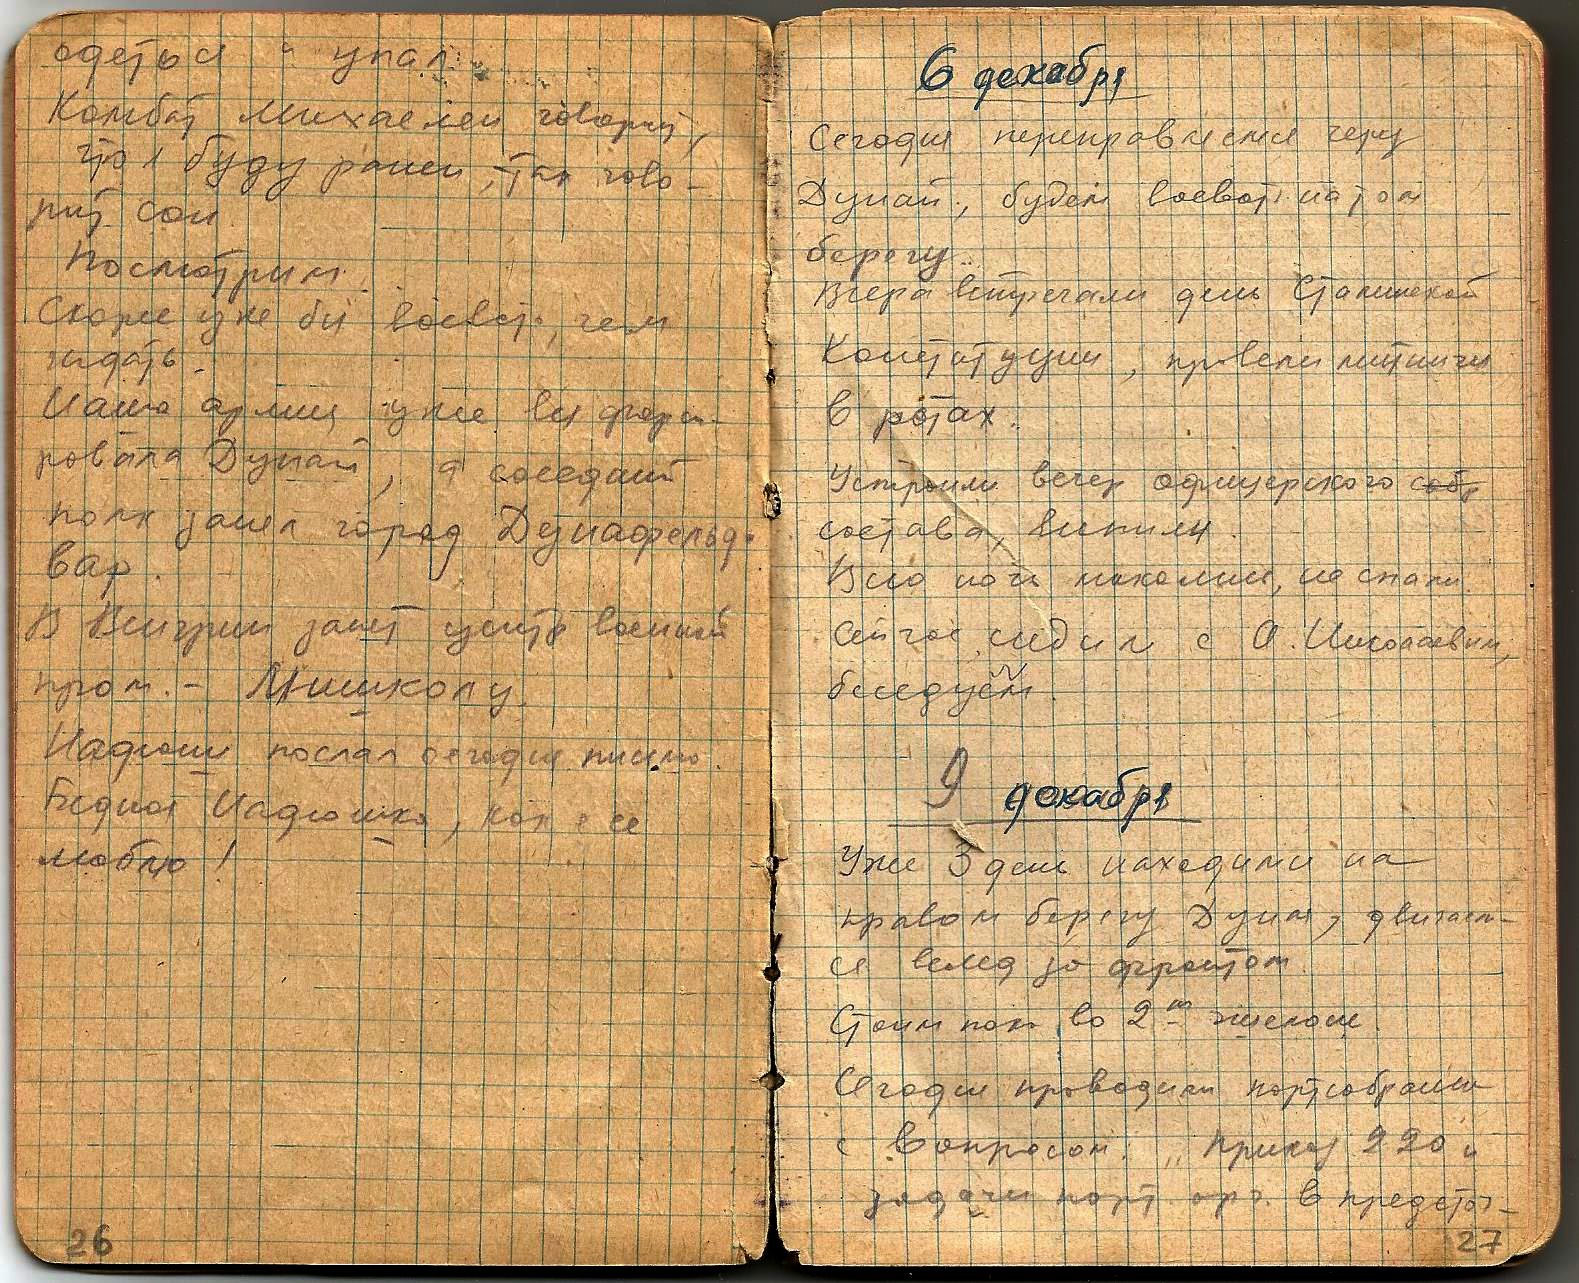 одеться и упал
Комбат Михаелен говорит,
что я буду ранен, так гово-
рит сон
Посмотрим.
Скорее уже бы воевать, чем
ждать.
Наша армия уже вы форси-
ровала Дунай, а соседний
полк занял город Дунафельд-
вар.
В Венгрии занят центр военной
пром. - Мишкольц.
Надюши послал сегодня письмо.
Бедная Надюшка, как я ее
люблю!
26
6 декабря
Сегодня переправляемся через
Дунай, будем воевать на том
берегу.
Вчера встречали день Сталинской
Конституции, провели митинги
в ротах.
Устроили вечер офицерского собр
состава, выпили.
Всю ночь не спали.
Сейчас сидим с А. Николаевым,
беседуем.
9 декабря
Уже 3 день находимся на
правом берегу Дуная, двигаем-
ся вслед за фронтом.
Стоим пока во 2-м эшелоне.
Сегодня проводили партсобрание
с вопросом: „Приказ 220 и
задачи парт. орг. в предсто-
27